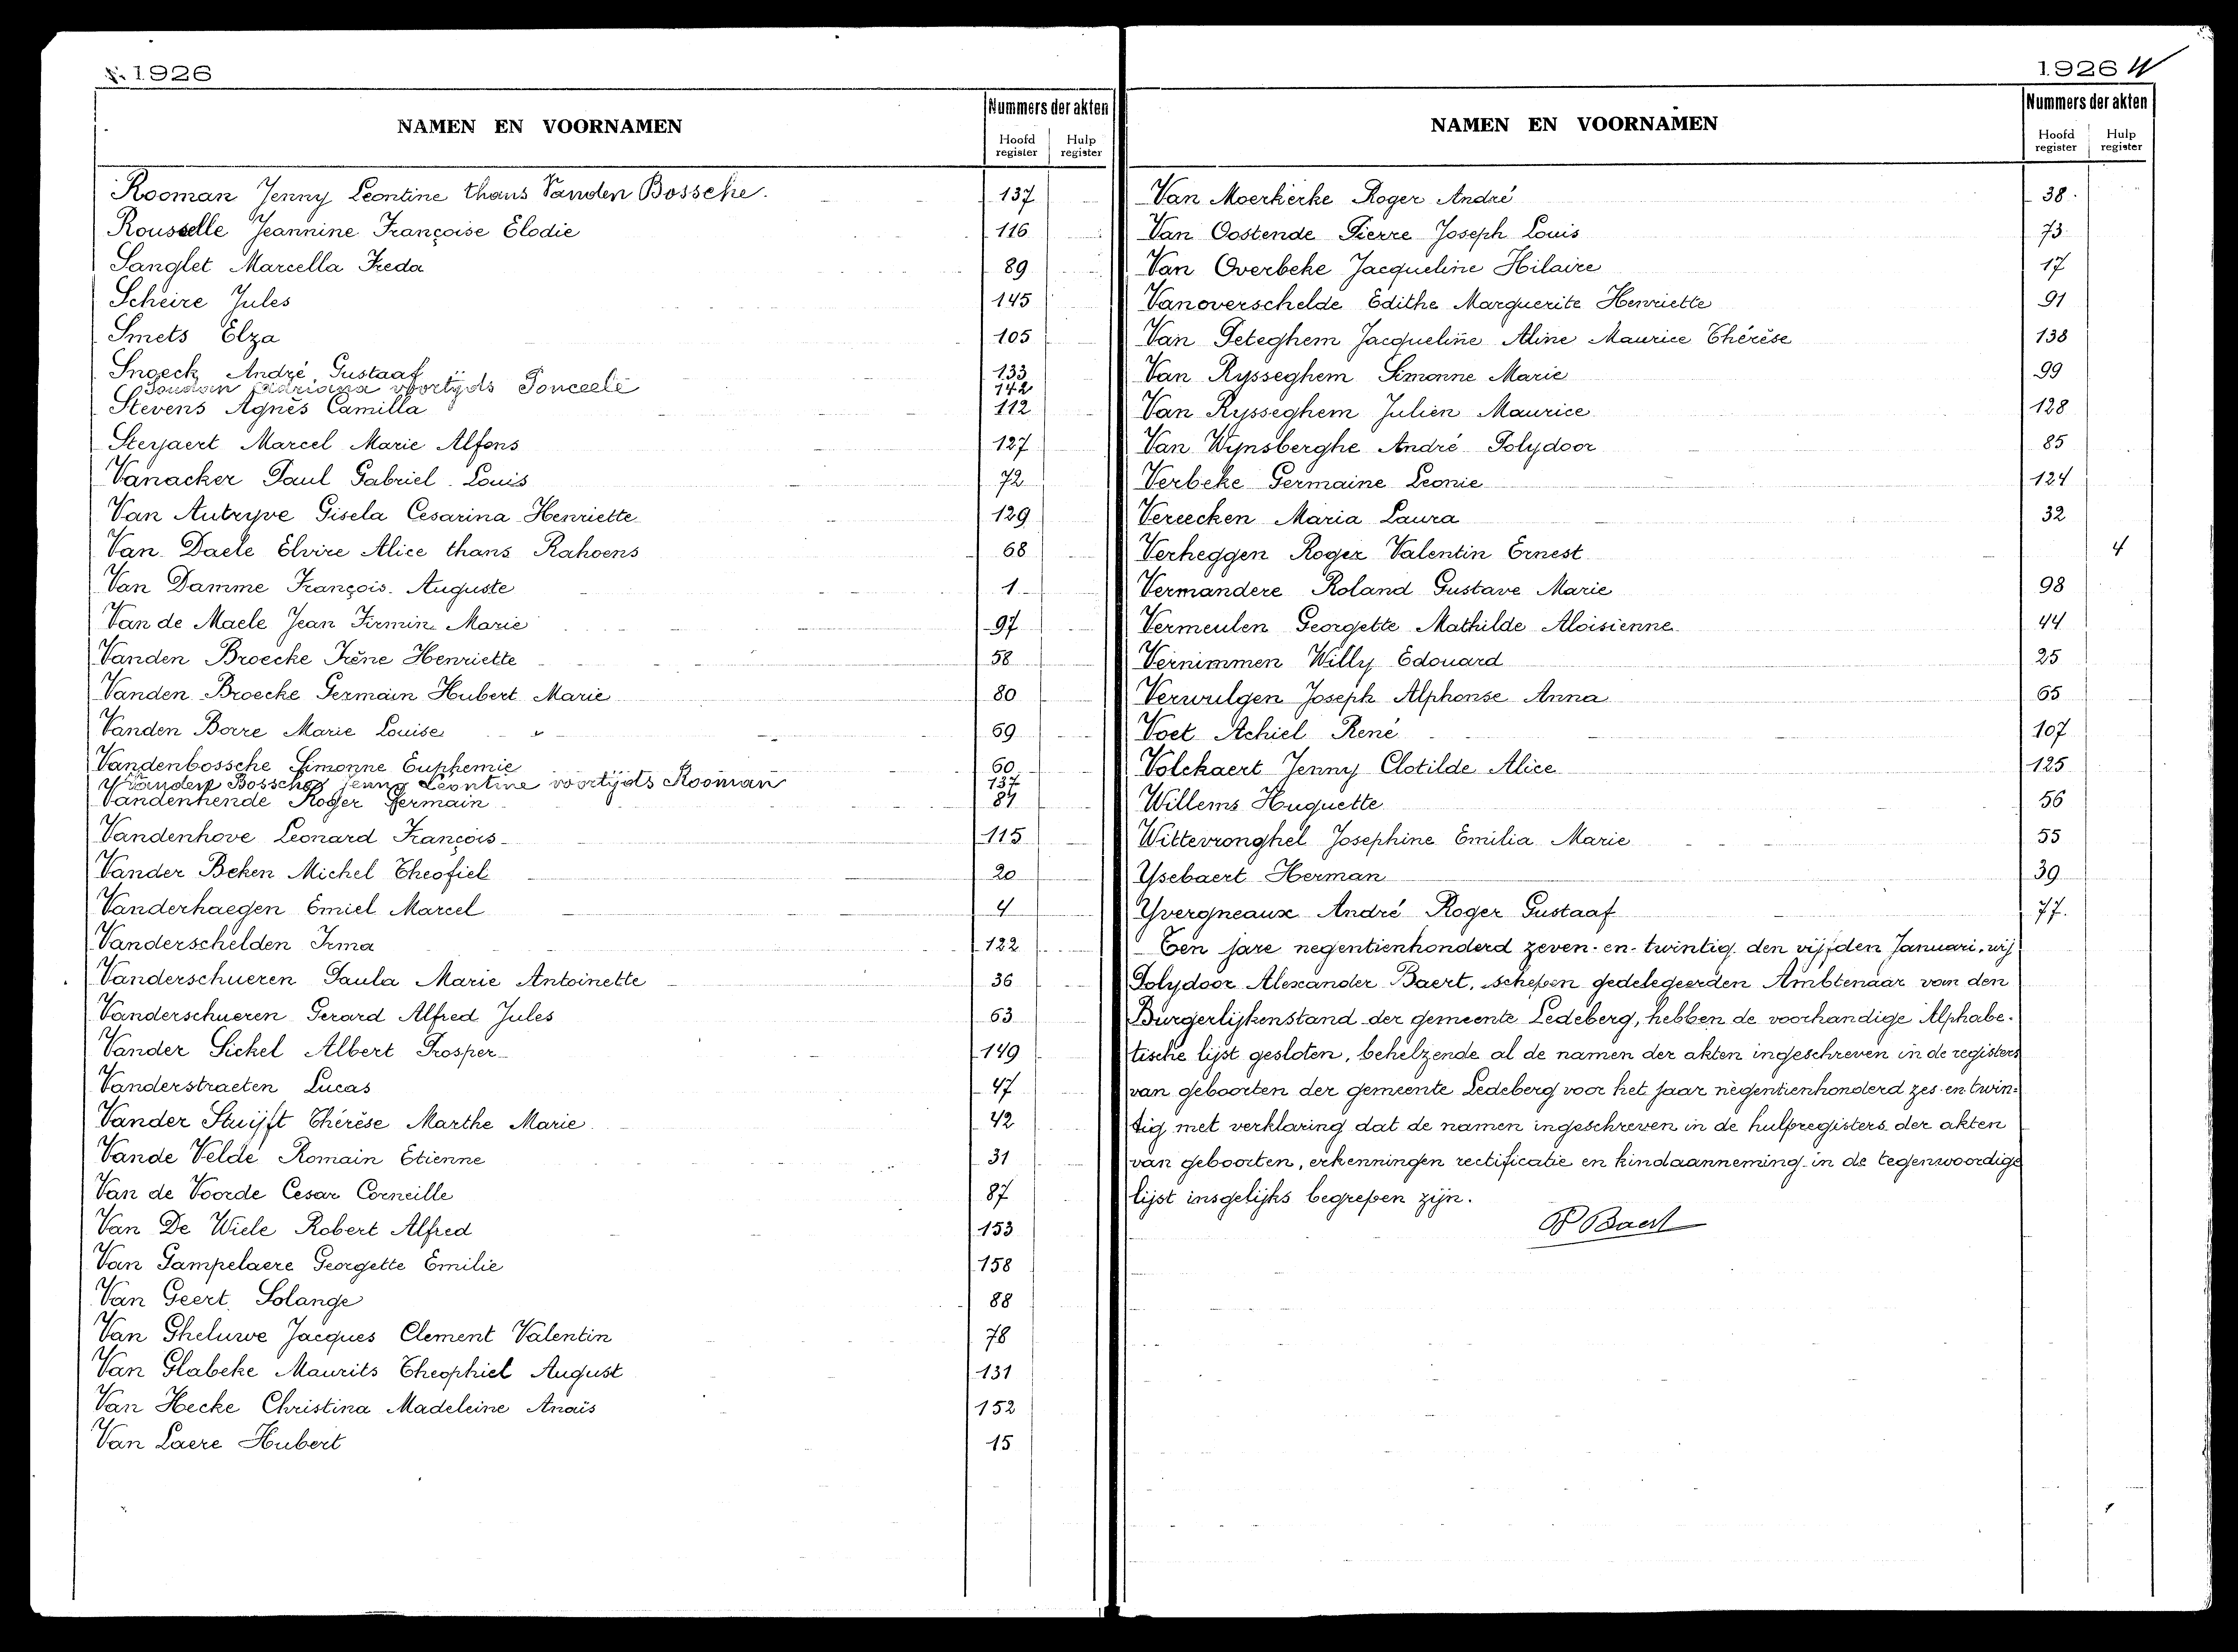 1926
NAMEN EN VOORNAMEN
Nummers der akten
Hoofd register
Hulp register
Rooman Jenny Leontine thans Vanden Bossche. 137
Rousselle Jeannine Françoise Elodie 116
Sanglet Marcella Freda 89
Scheire Jules 145
Smets Elza 105
Snoeck André Gustaaf 133
voortijds Ponceele 142
Stevens Agnès Camilla 112
Steyaert Marcel Marie Alfons 127
Vanacker Paul Gabriel Louis 72
Van Autryve Gisela Cesarina Henriette 129
Van Daele Elvire Alice thans Rahoens 68
Van Damme François Auguste 1
Van de Maele Jean Firmin Marie 97
Vanden Broecke Irène Henriette 58
Vanden Broecke Germain Hubert Marie 80
Vanden Borre Marie Louise 69
Vandenbossche Simonne Euphemie 60
Vanden Bossche Jenny Leontine voortijds Rooman 137
Vandenhende Roger Germain 84
Vandenhove Leonard François 115
Vander Beken Michel Theofiel 20
Vanderhaegen Emiel Marcel 4
Vanderschelden Irma 122
Vanderschueren Paula Marie Antoinette 36
Vanderschueren Gerard Alfred Jules 63
Vander Sickel Albert Prosper 149
Vanderstraeten Lucas 47
Vander Stuijft Thérèse Marthe Marie 42
Vande Velde Romain Etienne 31
Van de Voorde Cesar Corneille 87
Van De Wiele Robert Alfred 153
Van Gampelaere Georgette Emilie 158
Van Geert Solange 88
Van Gheluwe Jacques Clement Valentin 78
Van Glabeke Maurits Theophiel August 131
Van Hecke Christina Madeleine Anaïs 152
Van Laere Hubert 15
1926
NAMEN EN VOORNAMEN
Nummers der akten
Hoofd register
Hulp register
Van Moerkerke Roger André 38
Van Oostende Pierre Joseph Louis 73
Van Overbeke Jacqueline Hilaire 17
Vanoverschelde Edithe Marguerite Henriette 91
Van Peteghem Jacqueline Aline Maurice Thérèse 138
Van Rysseghem Simonne Marie 99
Van Rysseghem Julien Maurice 128
Van Wynsberghe André Polydoor 85
Verbeke Germaine Leonie 124
Vereecken Maria Laura 32
Verheggen Roger Valentin Ernest 4
Vermandere Roland Gustave Marie 98
Vermeulen Georgette Mathilde Aloisienne 44
Vernimmen Willy Edouard 25
Verwulgen Joseph Alphonse Anna 65
Voet Achiel René 107
Volckaert Jenny Clotilde Alice 125
Willems Huguette 56
Wittevronghel Josephine Emilia Marie 55
Ysebaert Herman 39
Yvergneaux André Roger Gustaaf 77
Een jare negentienhonderd zeven-en-twintig den vijfden Januari, wij
Polydoor Alexander Baert, schepen gedelegeerden Ambtenaar van den
Burgerlijkenstand der gemeente Ledeberg, hebben de voorhandige Alphabe-
tische lijst gesloten, behelzende al de namen der akten ingeschreven in de registers
van geboorten der gemeente Ledeberg voor het jaar negentienhonderd zes-en-twin-
tig met verklaring dat de namen ingeschreven in de hulpregisters der akten
van geboorten, erkenningen rectificatie en kindaanneming in de tegenwoordige
lijst insgelijks begrepen zijn.
P Baert